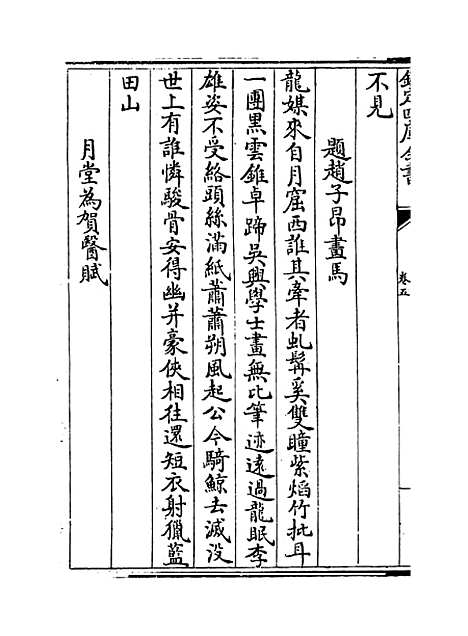 欽定四庫全書
卷五
不見
題趙子昂畫馬
龍媒來自月窟西誰其牽者虬髯奚雙瞳紫熖竹批耳
一團黑雲錐卓蹄吳興學士畫無比筆迹遠過龍眠李
雄姿不受絡頭絲滿紙蕭蕭朔風起公今騎鯨去滅没
世上有誰憐駿骨安得幽并豪俠相徃還短衣射獵藍
田山
月堂為賀醫賦